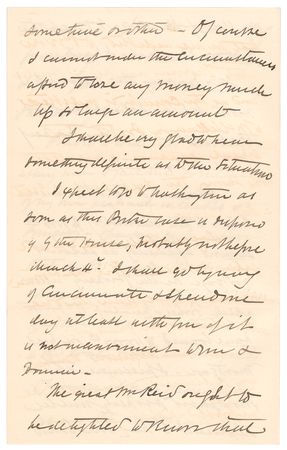 sometime or other – Of course
I cannot under the circumstances
afford to lose any money much
less so large an amount
I shall be very glad to hear
something definite as to the situation
I expect to go to Washington as
soon as this Porter case is disposed
of by the House, probably not before
March 4th. I shall go by way
of Cincinnati & spend one
day at least with you if it
is not inconvenient to you &
Fannie –
The great Mr Reid ought to
be delighted to know that